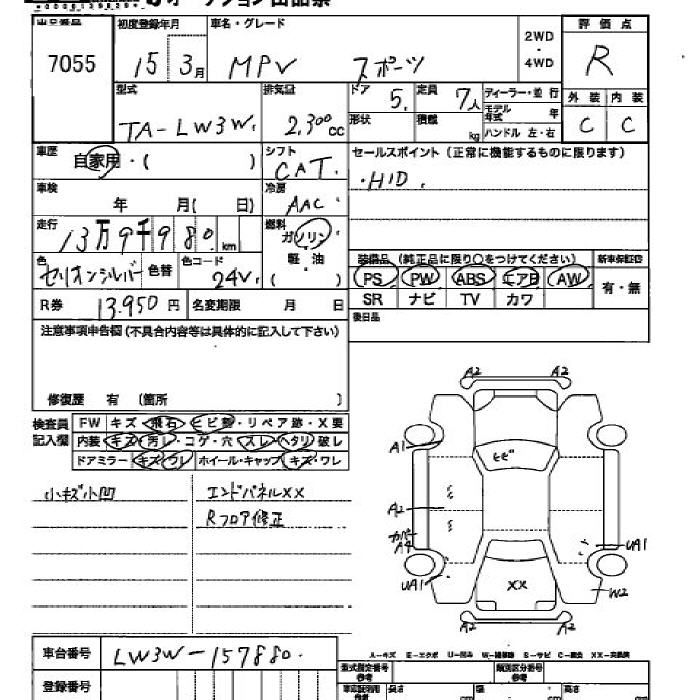 オークション出品票
出品番号 初度登録年月 車名・グレード 2WD・4WD 評価点
7055 15 3月 MPV スポーツ R
型式 排気量 ドア 定員 ディーラー・並行 外装 内装
TA-LW3W 2,300cc 5 7人 モデル年式 年 C C
形状 積載 kg ハンドル 左・右
車歴 自家用・( ) シフト CAT セールスポイント (正常に機能するものに限ります)
車検 年 月( 日) 冷房 AAC ・HID
走行 13万9千980km 燃料 ガソリン 軽油 ( )
装備品 (純正品に限り○をつけてください) 新車保証書
色 セリオンシルバー 色替 色コード 24V PS PW ABS エアB AW 有・無
SR ナビ TV カワ
R券 13,950円 名変期限 月 日 後日品
注意事項申告欄 (不具合内容等は具体的に記入して下さい)
修復歴 有 (箇所 )
検査員記入欄 FW キズ・飛石・ヒビ・リペア跡・X要
内装 キズ・汚レ・コゲ・穴・スレ・ヘタリ・破レ
ドアミラー キズ・ワレ ホイール・キャップ キズ・ワレ
小キズ小凹 エンドパネルXX
Rフロア修正
A2 A2
A1
ヒビ
A2
カバー A4
UA1 UA1
XX
W2
A2 A2
A-キズ E-エクボ U-凹み W-補修跡 S-サビ C-腐食 XX-交換済
車台番号 LW3W-157880
登録番号
型式指定番号 参考 類別区分番号 参考
長さ cm 幅 cm 高さ cm